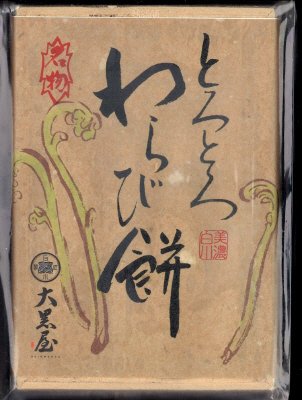 とろとろ
わらび餅
名物
美濃
白川
大黒屋